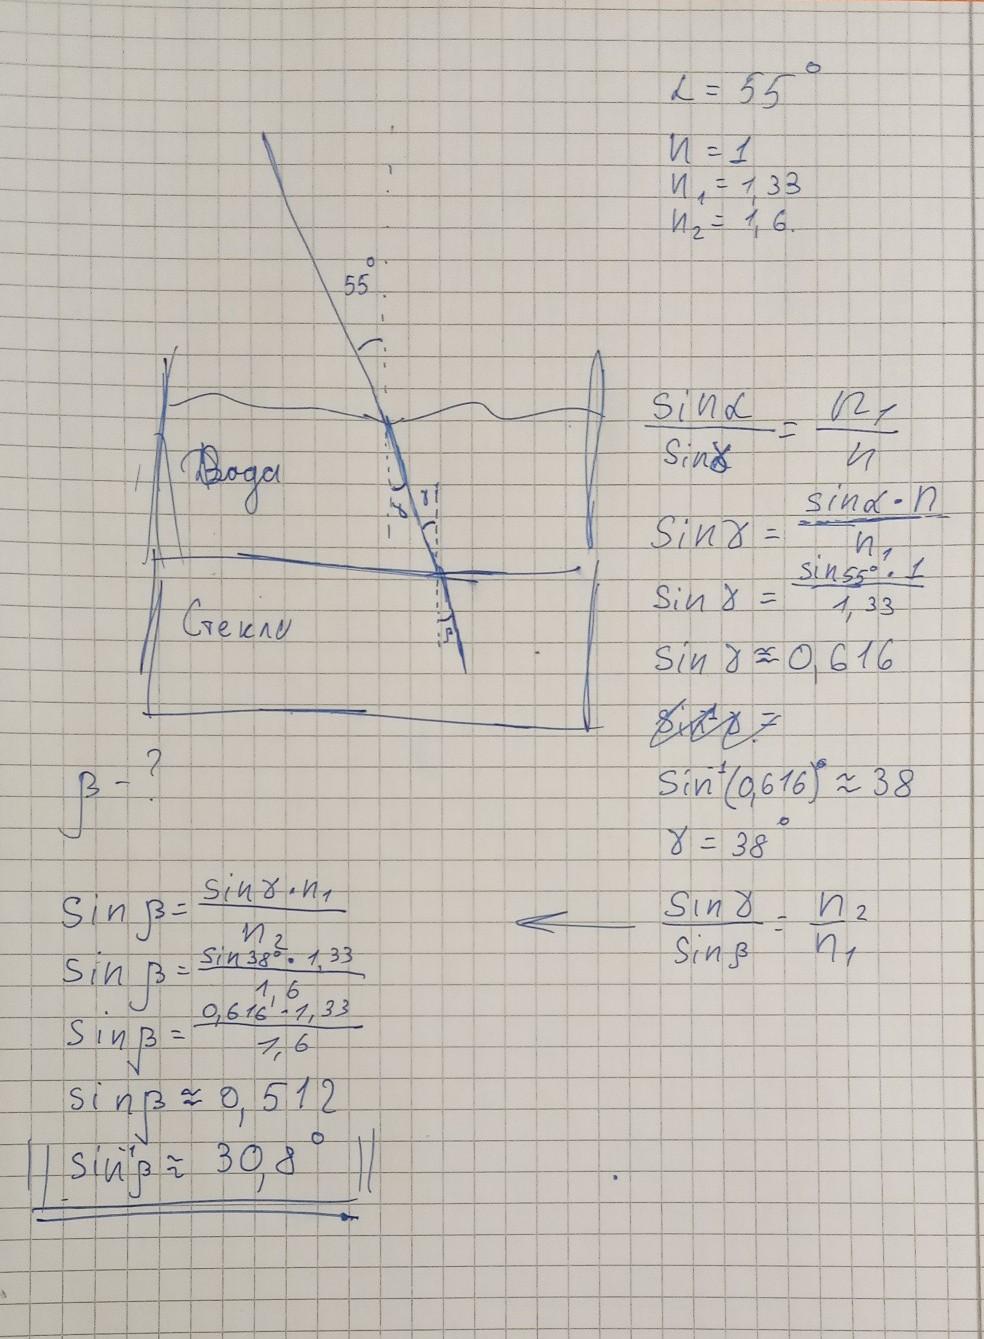 α = 55°
n = 1
n₁ = 1,33
n₂ = 1,6.
55°
Вода
γ
γ
Стекло
β
sinα / sinγ = n₁ / n
Sin γ = sinα · n / n₁
Sin γ = sin55° · 1 / 1,33
Sin γ ≈ 0,616
Sin⁻¹(0,616)° ≈ 38
γ = 38°
Sin γ / Sin β = n₂ / n₁
β - ?
Sin β = Sin γ · n₁ / n₂
Sin β = Sin 38° · 1,33 / 1,6
Sin β = 0,616 · 1,33 / 1,6
Sin β ≈ 0,512
Sin⁻¹β ≈ 30,8°